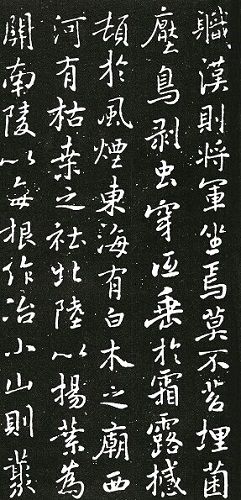 職漢則将軍坐焉莫不苔埋菌
壓鳥剥虫穿低垂於霜露撼
頓於風煙東海有白木之廟西
河有枯桒之社北陸以揚葉為
關南陵以每根作冶小山則藂